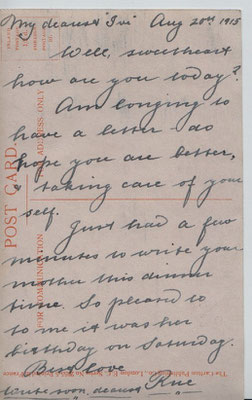 My dearest "Ivi" Aug 20th 1915
Well, sweetheart
how are you today?
Am longing to
have a letter do
hope you are better,
& taking care of your
self.
Just had a few
minutes to write your
mother this dinner
time. So pleased to
to me it was her
birthday on Saturday.
Best love
write soon, dearest
POST CARD.
FOR ADDRESS ONLY
FOR COMMUNICATION